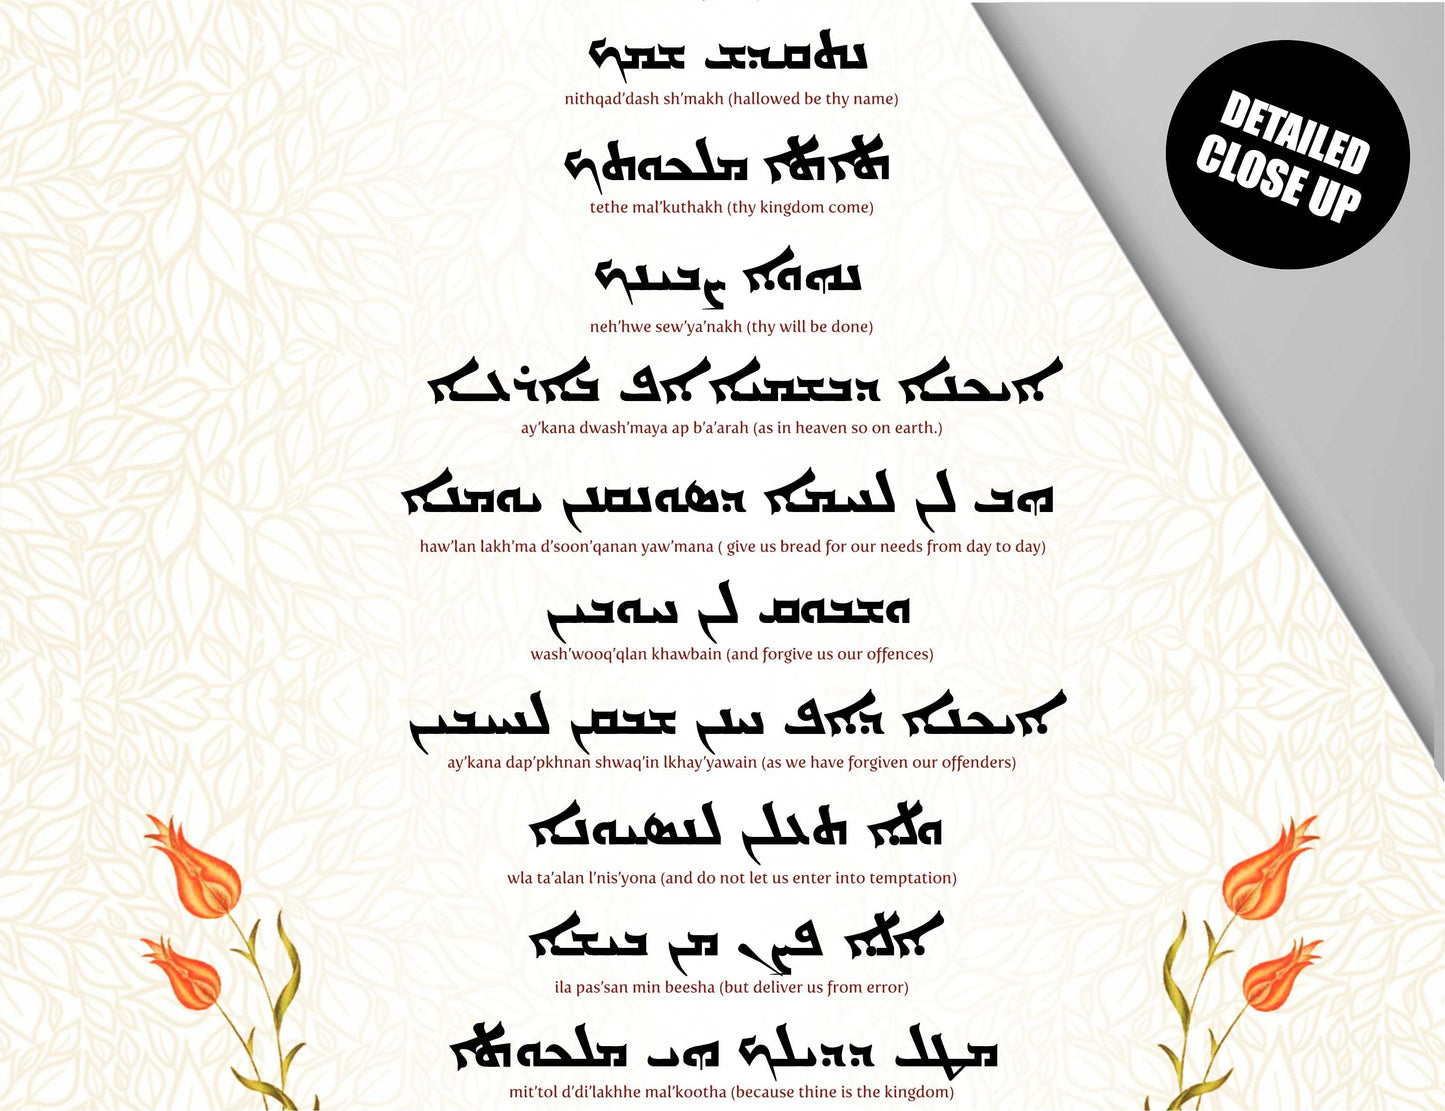 ܢܬܩܕܫ ܫܡܟ
nithqad'dash sh'makh (hallowed be thy name)
ܬܐܬܐ ܡܠܟܘܬܟ
tethe mal'kuthakh (thy kingdom come)
ܢܗܘܐ ܨܒܝܢܟ
neh'hwe sew'ya'nakh (thy will be done)
ܐܝܟܢܐ ܕܒܫܡܝܐ ܐܦ ܒܐܪܥܐ
ay'kana dwash'maya ap b'a'arah (as in heaven so on earth.)
ܗܒ ܠܢ ܠܚܡܐ ܕܣܘܢܩܢܢ ܝܘܡܢܐ
haw'lan lakh'ma d'soon'qanan yaw'mana ( give us bread for our needs from day to day)
ܘܫܒܘܩ ܠܢ ܚܘܒܝܢ
wash'wooq'qlan khawbain (and forgive us our offences)
ܐܝܟܢܐ ܕܐܦ ܚܢܢ ܫܒܩܢ ܠܚܝܒܝܢ
ay'kana dap'pkhnan shwaq'in lkhay'yawain (as we have forgiven our offenders)
ܘܠܐ ܬܥܠܢ ܠܢܣܝܘܢܐ
wla ta'alan l'nis'yona (and do not let us enter into temptation)
ܐܠܐ ܦܨܢ ܡܢ ܒܝܫܐ
ila pas'san min beesha (but deliver us from error)
ܡܛܠ ܕܕܝܠܟ ܗܝ ܡܠܟܘܬܐ
mit'tol d'di'lakhhe mal'kootha (because thine is the kingdom)
DETAILED
CLOSE UP